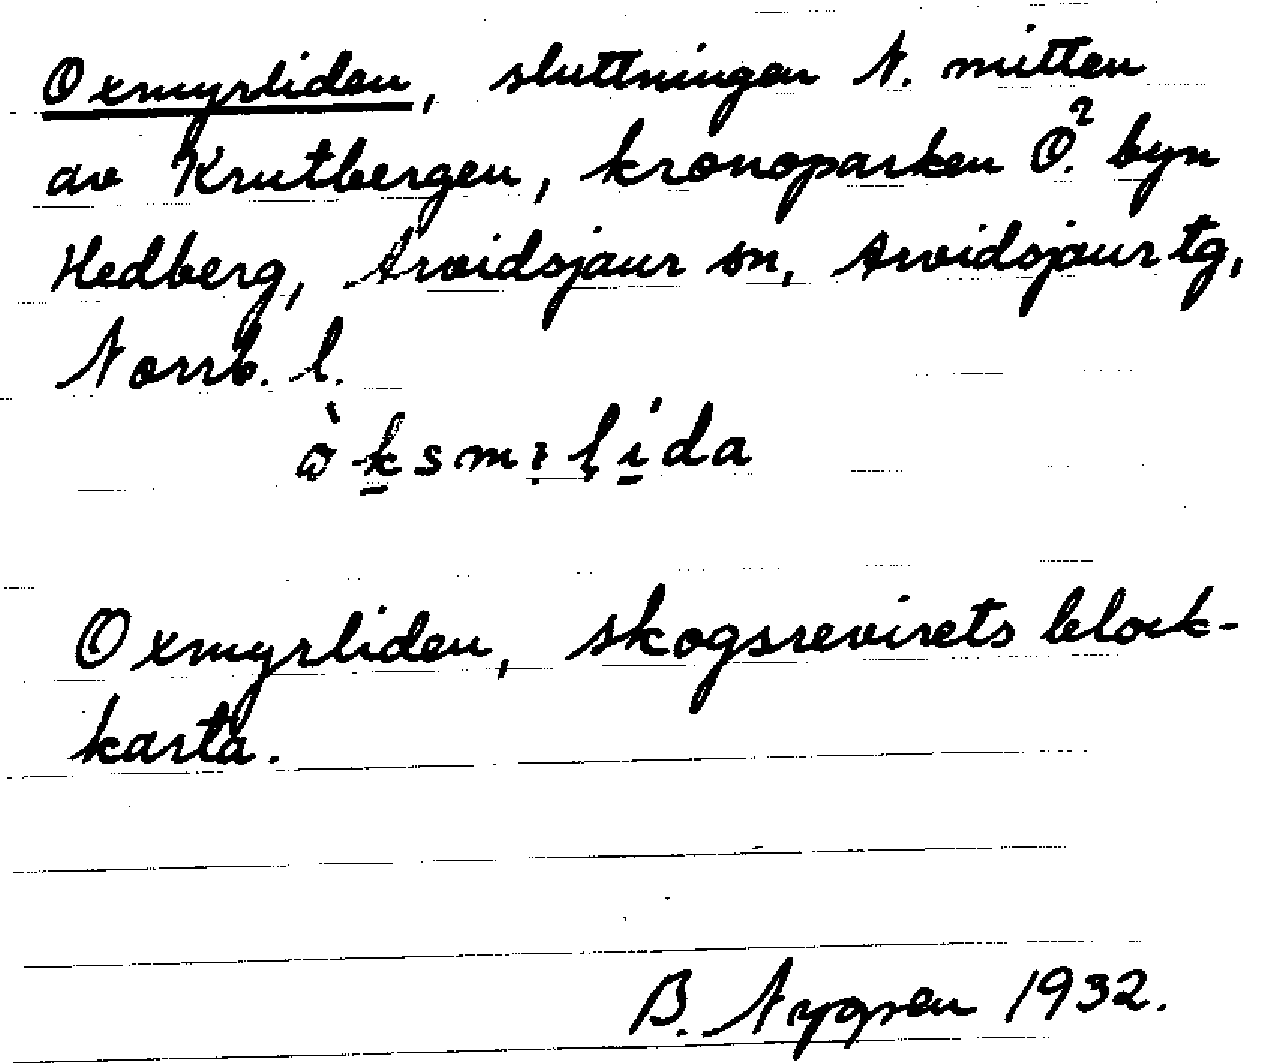 Oxmyrliden, sluttningen N. mitten
av Krutbergen, kronoparken Ö.² byn
Hedberg, Arvidsjaur sn, Arvidsjaur tg,
Norrb. l.
Oxmyrliden, skogsrevirets block-
karta.
B. Nygren 1932.